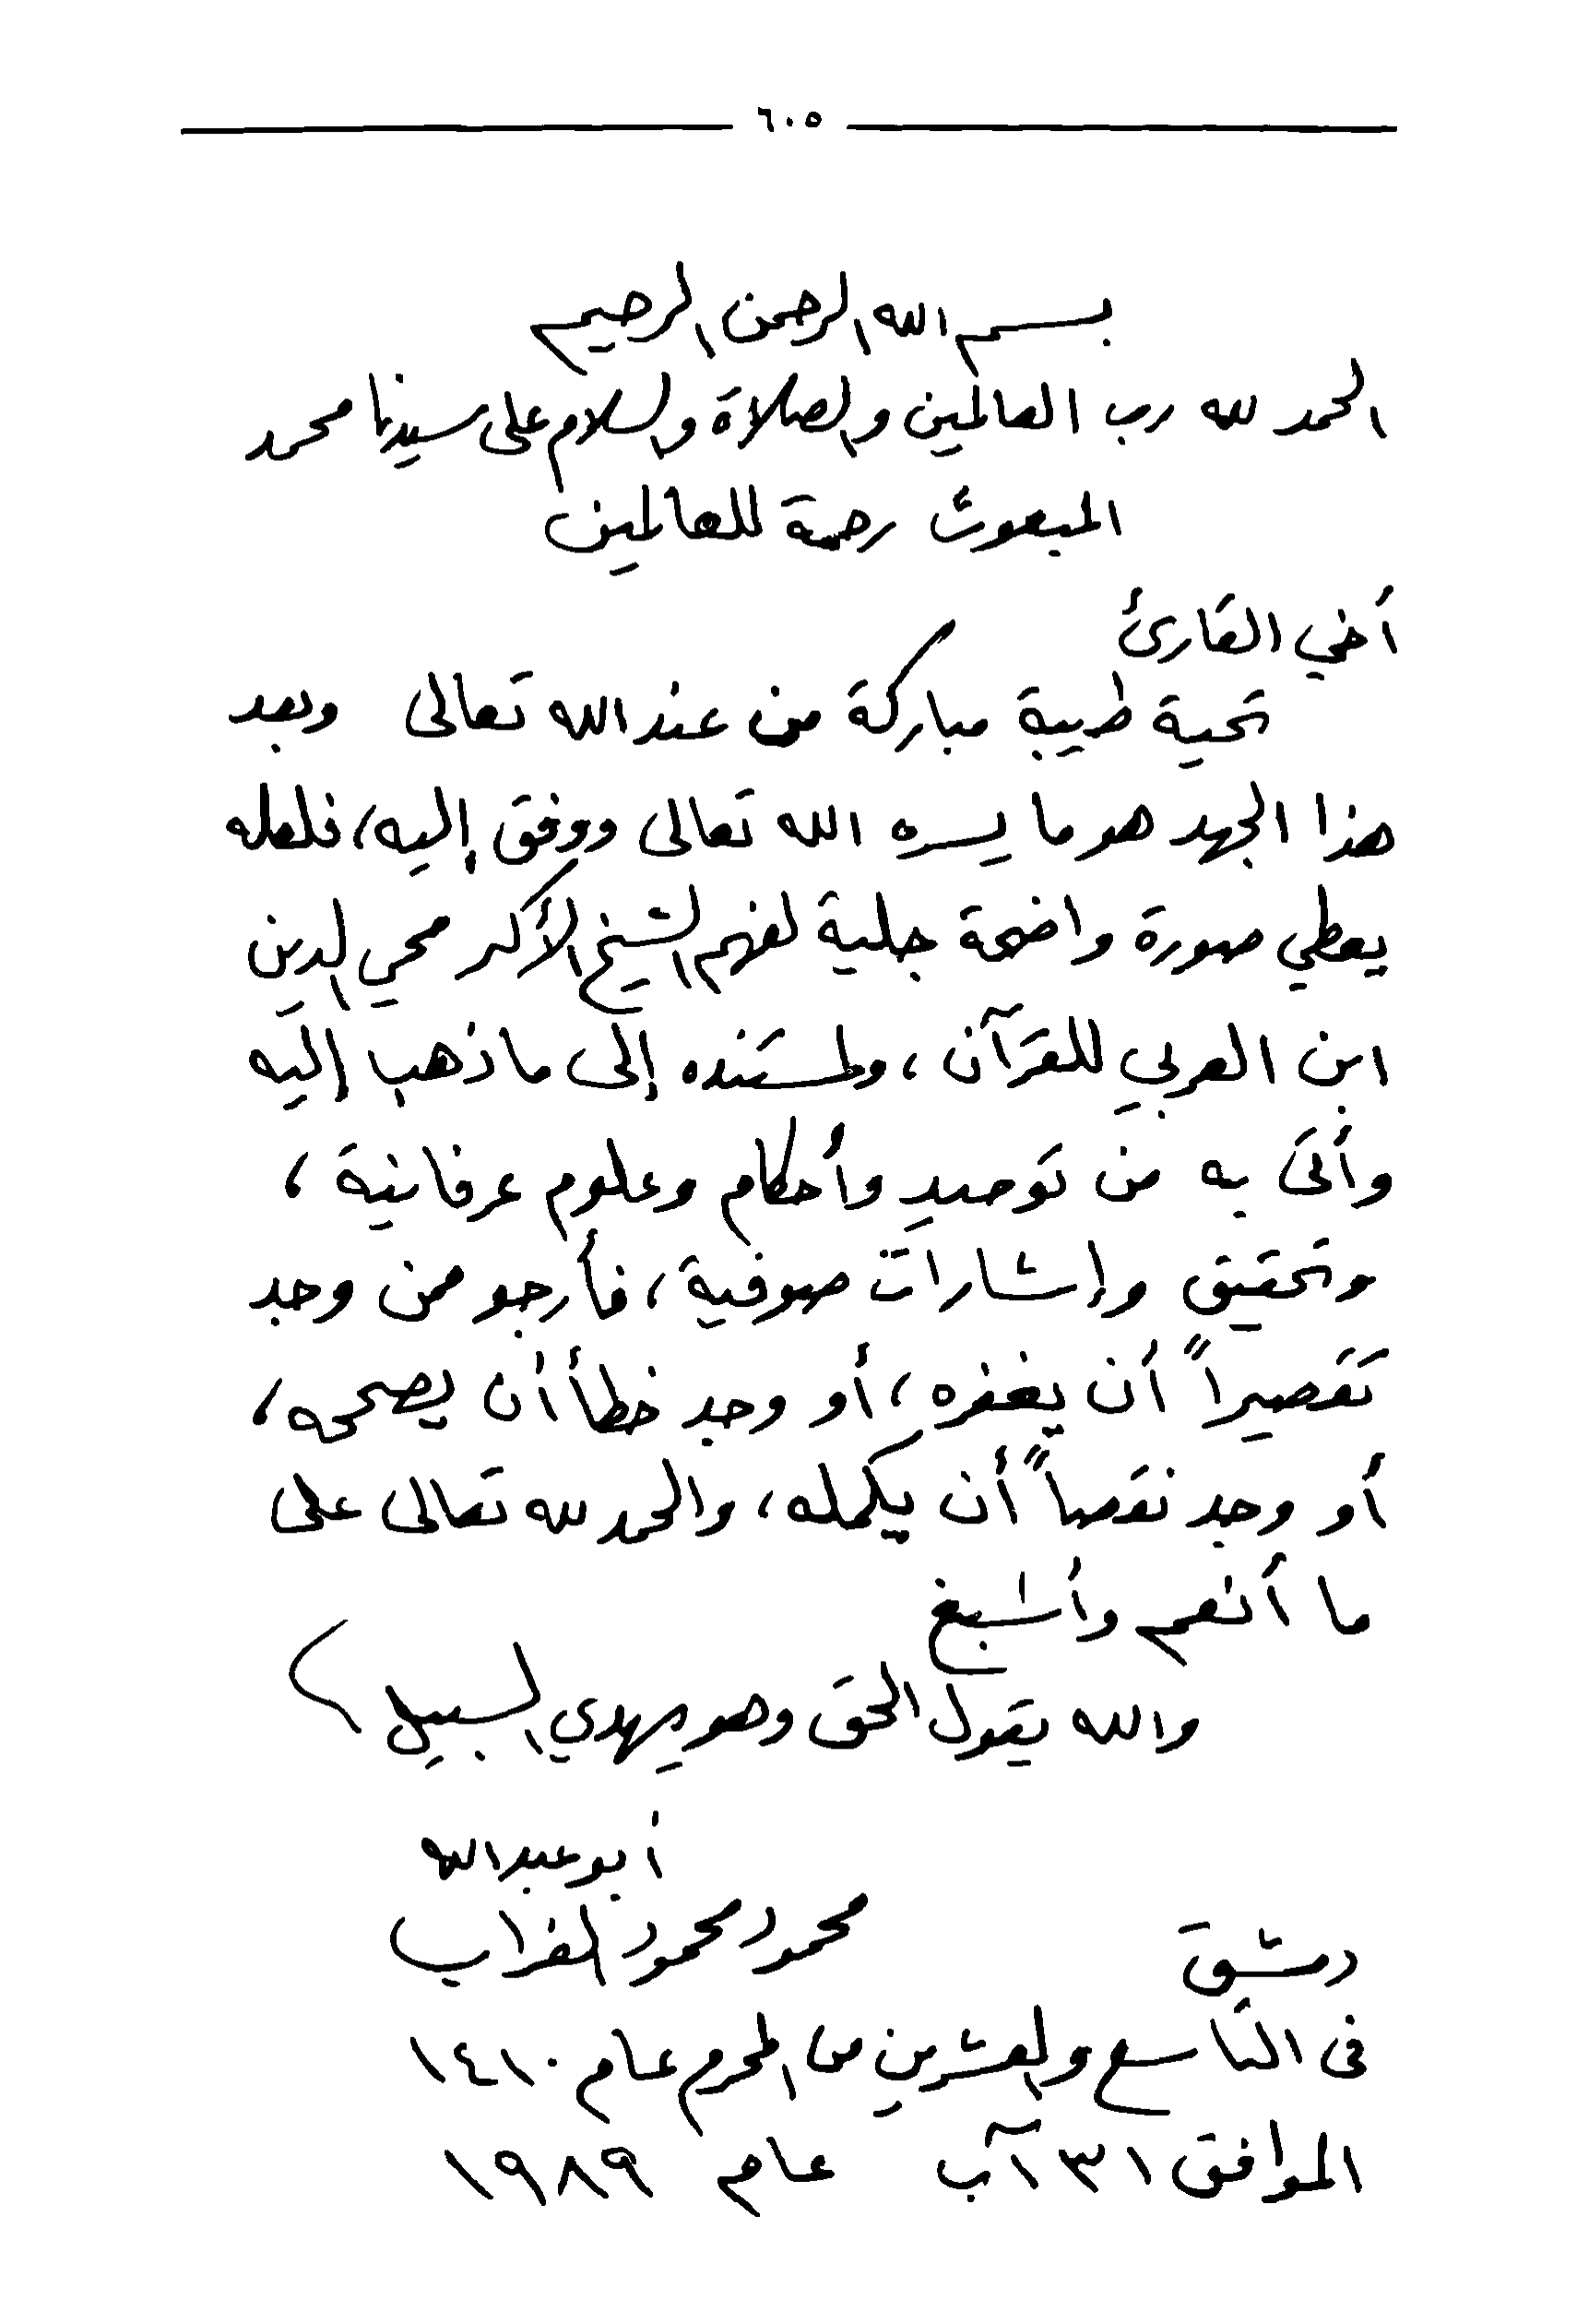 ٦٠٥
بسم الله الرحمن الرحيم
الحمد لله رب العالمين والصلاة والسلام على سيدنا محمد
المبعوث رحمة للعالمين
أخي القارئ
تحية طيبة مباركة من عند الله تعالى وبعد
هذا الجهد هو ما يسره الله تعالى ووفق إليه، فلعله
يعطي صورة واضحة جلية لفهم الشيخ الأكبر محي الدين
ابن العربي للقرآن، ولمستنده إلى ما ذهب إليه
وأتى به من توحيد وأحكام وعلوم عرفانية،
وتحقيق وإشارات صوفية، فأرجو ممن وجد
تقصيراً أن يغفره، أو وجد خطأ أن يصححه،
أو وجد نقصاً أن يكمله، والحمد لله تعالى على
ما أنعم وأسبغ
والله يقول الحق وهو يهدي السبيل
أبو عبد الله
محمود محمود الغراب
دمشق
في التاسع والعشرين من المحرم عام ١٤١٠
الموافق ٣١ آب عام ١٩٨٩